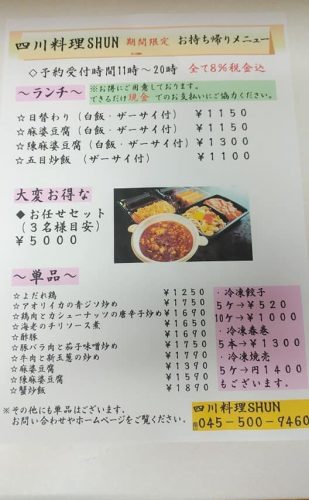 四川料理SHUN 期間限定 お持ち帰りメニュー
◇予約受付時間11時～20時 全て8％税金込
～ランチ～
※お得にご用意しております。
できるだけ現金 でのお支払いにご協力ください。
☆日替わり（白飯・ザーサイ付） ￥1150
☆麻婆豆腐（白飯・ザーサイ付） ￥1150
☆陳麻婆豆腐（白飯・ザーサイ付）￥1300
☆五目炒飯 （ザーサイ付） ￥1100
大変お得な
◆お任せセット
（３名様目安）
￥5000
～単品～
☆よだれ鶏 ￥1250
☆アオリイカの青ジソ炒め ￥1750
☆鶏肉とカシューナッツの唐辛子炒め ￥1690
☆海老のチリソース煮 ￥1650
☆酢豚 ￥1690
☆豚バラ肉と茄子味噌炒め ￥1490
☆牛肉と新玉葱の炒め
☆麻婆豆腐
☆陳麻婆豆腐 ￥1590
☆蟹炒飯 ￥1890
・冷凍餃子
5ケ→￥520
10ケ→￥1000
・冷凍春巻
5本→￥1300
・冷凍焼売
5ケ→円1400
もございます。
※その他にも単品はございます、
お問い合わせやホームページをご覧ください。
四川料理SHUN
☎045-500-9460